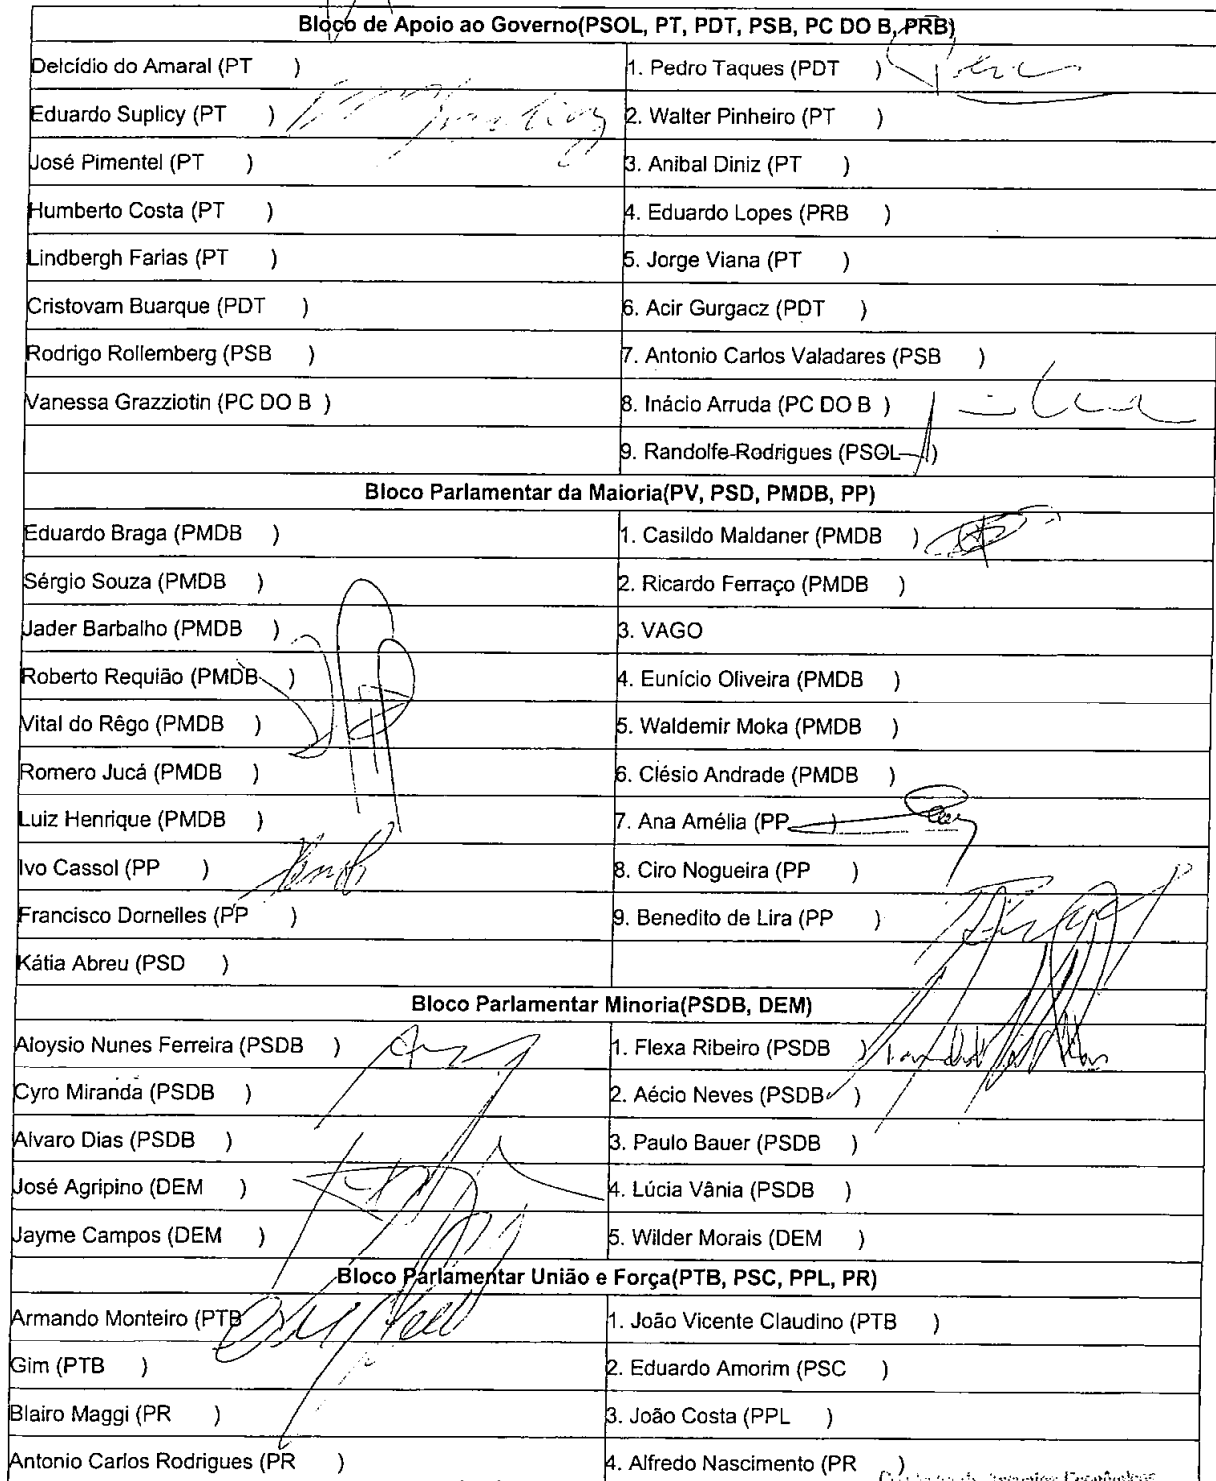 Bloco de Apoio ao Governo(PSOL, PT, PDT, PSB, PC DO B, PRB)
Delcídio do Amaral (PT ) 1. Pedro Taques (PDT )
Eduardo Suplicy (PT ) 2. Walter Pinheiro (PT )
José Pimentel (PT ) 3. Anibal Diniz (PT )
Humberto Costa (PT ) 4. Eduardo Lopes (PRB )
Lindbergh Farias (PT ) 5. Jorge Viana (PT )
Cristovam Buarque (PDT ) 6. Acir Gurgacz (PDT )
Rodrigo Rollemberg (PSB ) 7. Antonio Carlos Valadares (PSB )
Vanessa Grazziotin (PC DO B ) 8. Inácio Arruda (PC DO B )
9. Randolfe Rodrigues (PSOL )
Bloco Parlamentar da Maioria(PV, PSD, PMDB, PP)
Eduardo Braga (PMDB ) 1. Casildo Maldaner (PMDB )
Sérgio Souza (PMDB ) 2. Ricardo Ferraço (PMDB )
Jader Barbalho (PMDB ) 3. VAGO
Roberto Requião (PMDB ) 4. Eunício Oliveira (PMDB )
Vital do Rêgo (PMDB ) 5. Waldemir Moka (PMDB )
Romero Jucá (PMDB ) 6. Clésio Andrade (PMDB )
Luiz Henrique (PMDB ) 7. Ana Amélia (PP )
Ivo Cassol (PP ) 8. Ciro Nogueira (PP )
Francisco Dornelles (PP ) 9. Benedito de Lira (PP )
Kátia Abreu (PSD )
Bloco Parlamentar Minoria(PSDB, DEM)
Aloysio Nunes Ferreira (PSDB ) 1. Flexa Ribeiro (PSDB )
Cyro Miranda (PSDB ) 2. Aécio Neves (PSDB )
Alvaro Dias (PSDB ) 3. Paulo Bauer (PSDB )
José Agripino (DEM ) 4. Lúcia Vânia (PSDB )
Jayme Campos (DEM ) 5. Wilder Morais (DEM )
Bloco Parlamentar União e Força(PTB, PSC, PPL, PR)
Armando Monteiro (PTB ) 1. João Vicente Claudino (PTB )
Gim (PTB ) 2. Eduardo Amorim (PSC )
Blairo Maggi (PR ) 3. João Costa (PPL )
Antonio Carlos Rodrigues (PR ) 4. Alfredo Nascimento (PR )